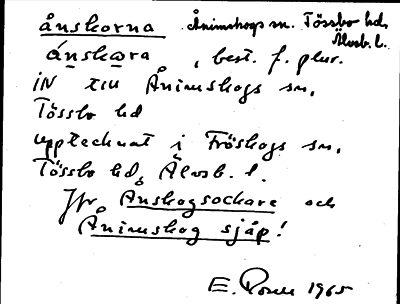 ånskorna Ånimskogs sn. Tössbo hd,
Älvsb. l.
ánskωra , best. f. plur.
IN till Ånimskogs sn,
Tössbo hd
upptecknat i Fröskogs sn,
Tössbo hd, Älvsb. l.
Jfr Ånskogsockare och
Ånimskog sjåp!
E. 1965